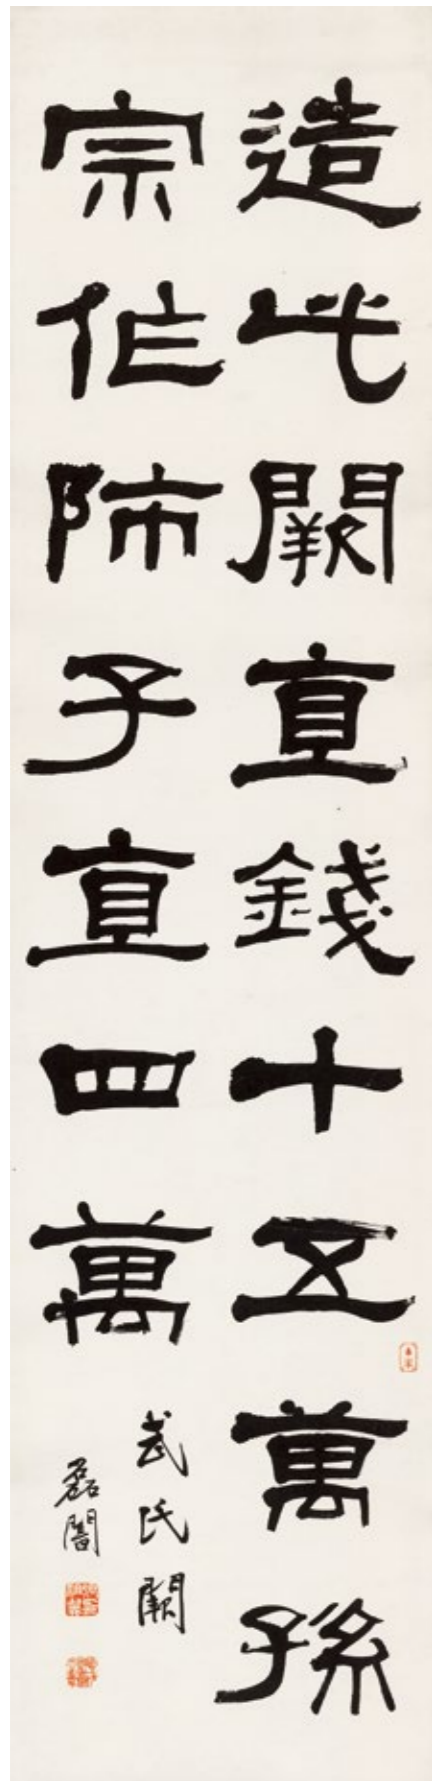 造此闕直錢十五萬孫
宗作師子直四萬
武氏闕
磊闇